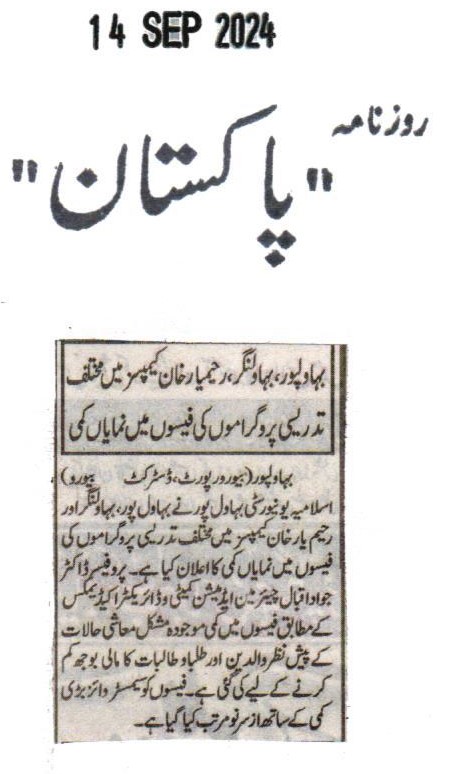 14 SEP 2024
روزنامہ
"پاکستان"
بہاولپور، بہاولنگر، رحیمیار خان کیمپسز میں مختلف
تدریسی پروگراموں کی فیسوں میں نمایاں کمی
بہاولپور (بیورو رپورٹ، ڈسٹرکٹ بیورو)
اسلامیہ یونیورسٹی بہاول پور نے بہاول پور، بہاولنگر اور
رحیم یار خان کیمپسز میں مختلف تدریسی پروگراموں کی
فیسوں میں نمایاں کمی کا اعلان کیا ہے۔ پروفیسر ڈاکٹر
جواد اقبال چیئرمین ایڈمیشن کمیٹی و ڈائریکٹر اکیڈیمکس
کے مطابق فیسوں میں کمی موجودہ مشکل معاشی حالات
کے پیش نظر والدین اور طلباو طالبات کا مالی بوجھ کم
کرنے کے لیے کی گئی ہے۔ فیسوں کو سمسٹر وائز بڑی
کمی کے ساتھ از سر نو مرتب کیا گیا ہے۔